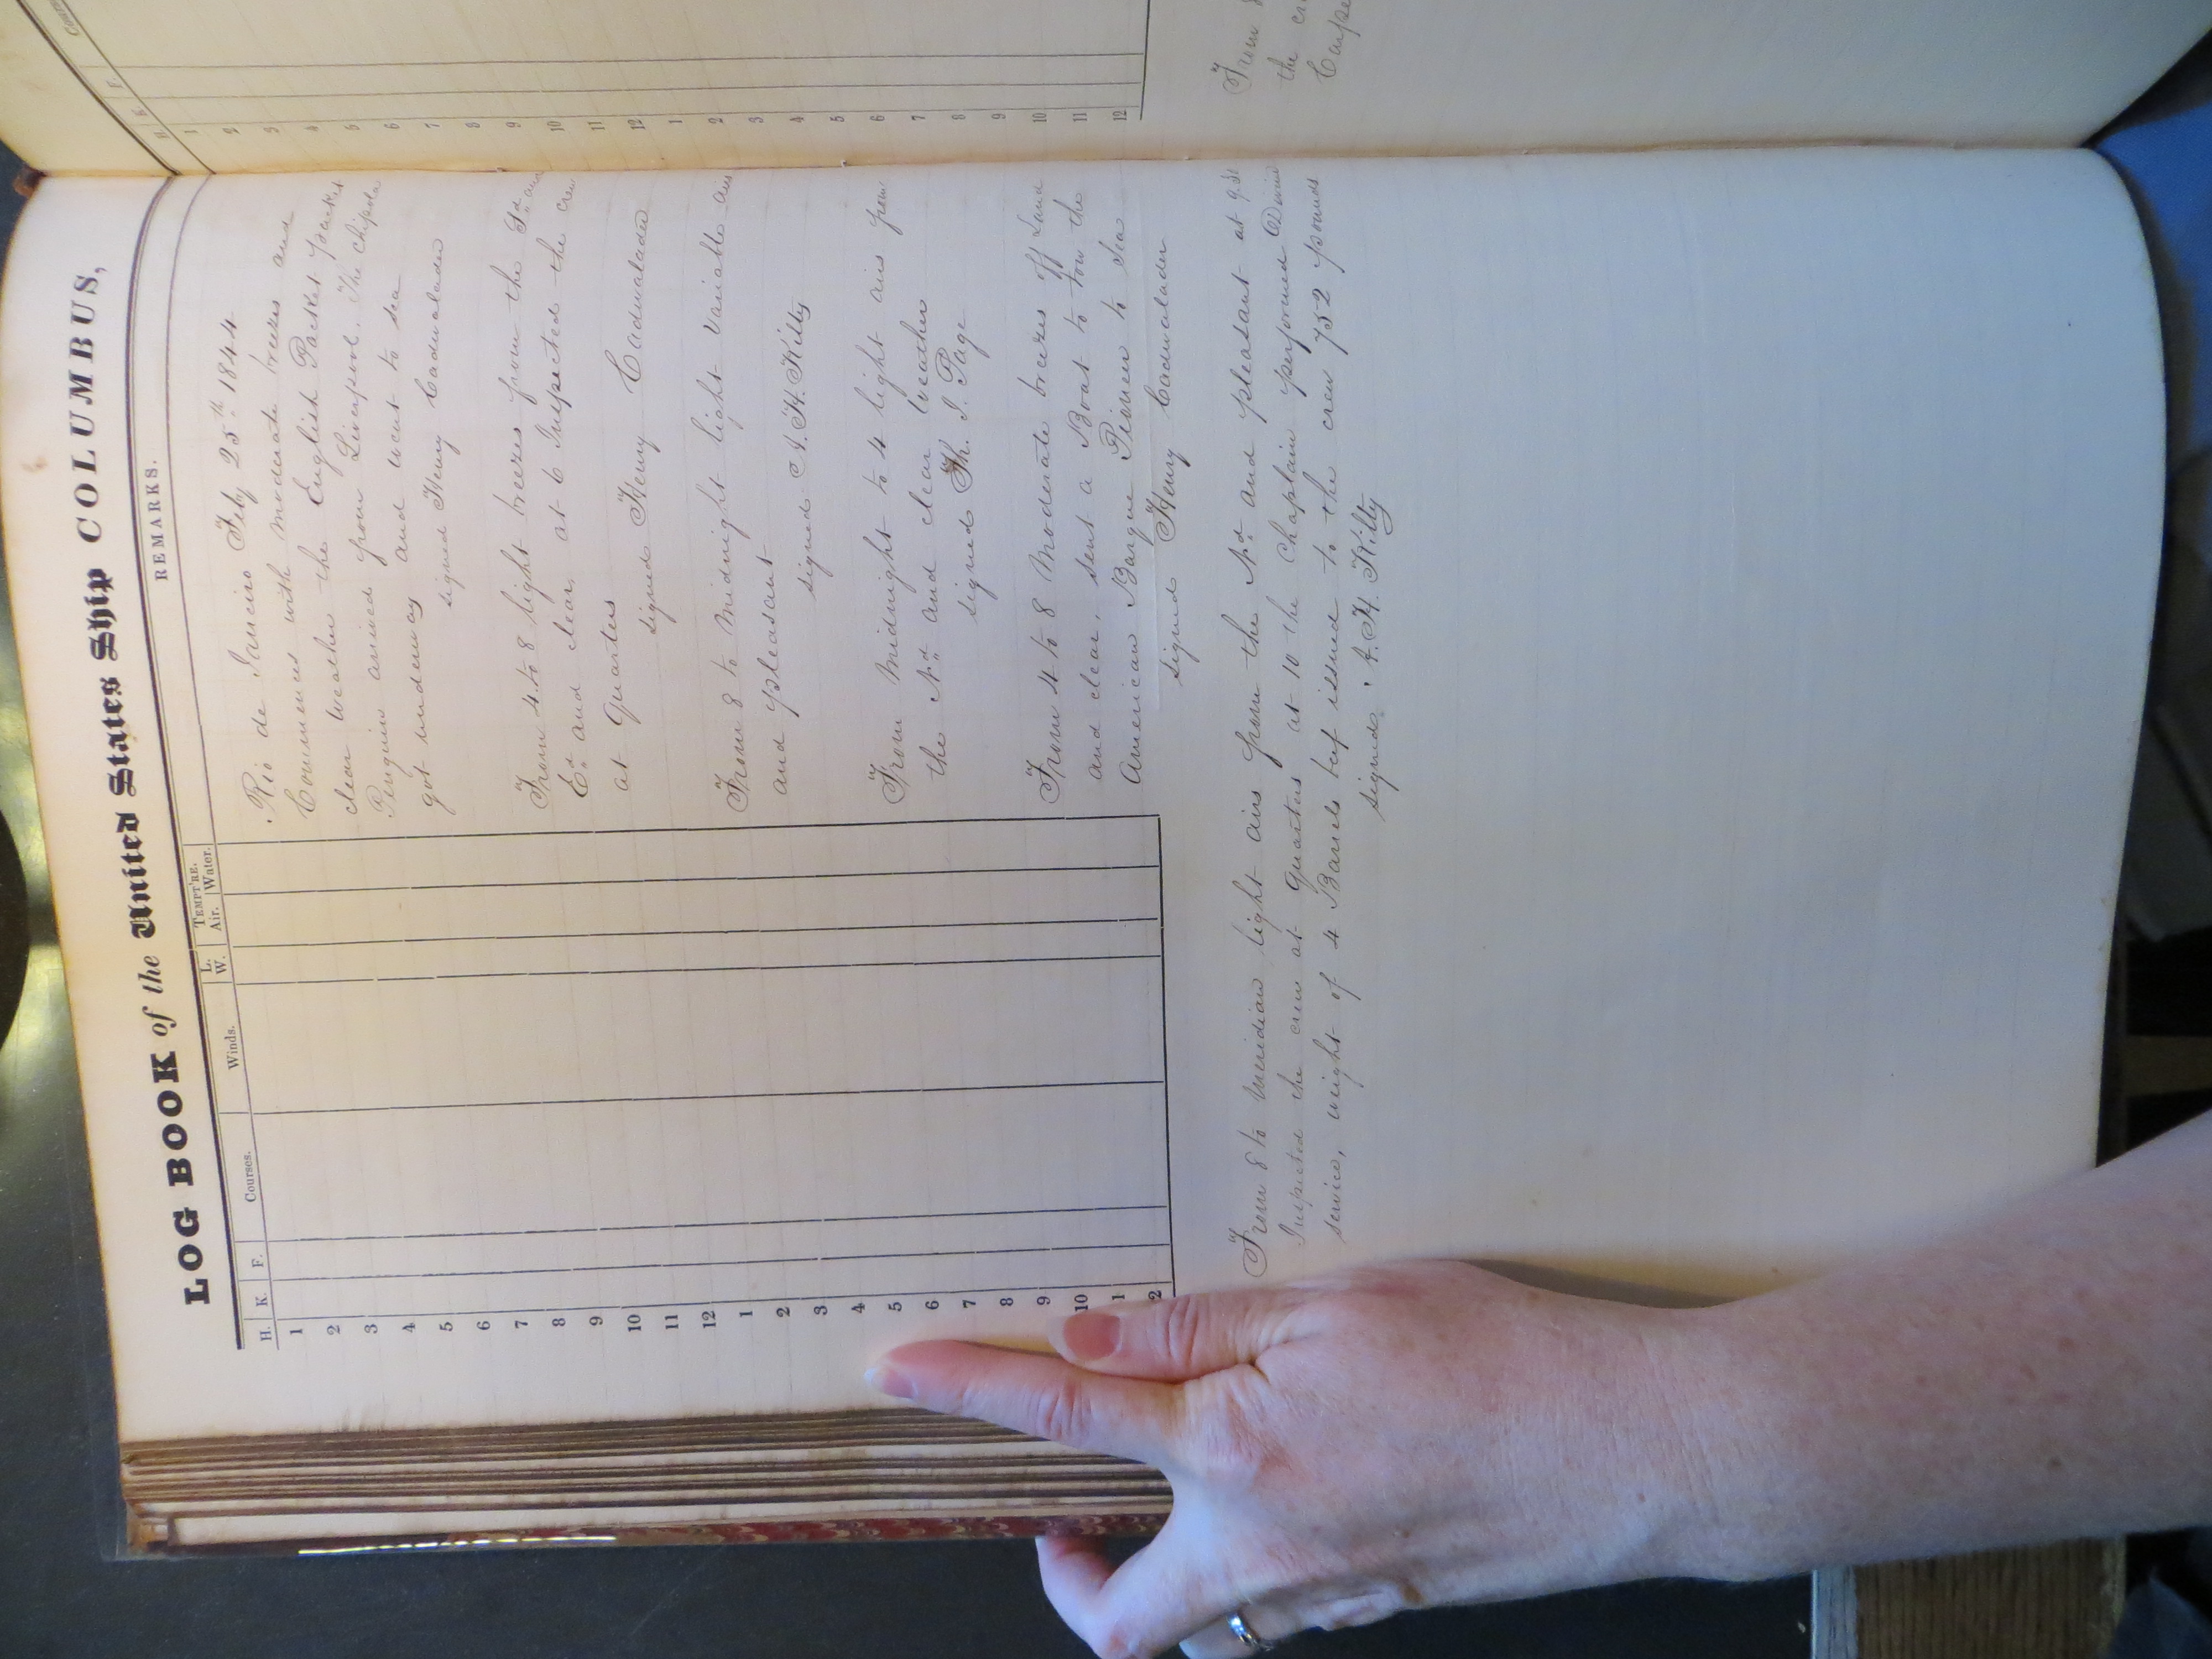 LOG BOOK of the United States Ship COLUMBUS,
H. K. F. Courses. Winds. L. W. TEMPT'RE. Air. Water. REMARKS.
1
2
3
4
5
6
7
8
9
10
11
12
1
2
3
4
5
6
7
8
9
10
1
2
Rio de Janeiro Feby 25th 1844
Commences with moderate breezes and
clear weather the English Packet packet
Penguin arived from Liverpool. The
got underway and went to sea
signed Henry Cadwalader
From 4 to 8 light breezes from the Sd and
Ed and clear, at 6 Inspected the crew
at quarters
signed Henry Cadwalader
From 8 to Midnight light variable airs
and pleasant
signed A. H. Kilty
From Midnight to 4 light airs from
the Nd and clear weather
signed Th. J. Page
From 4 to 8 Moderate breezes off Land
and clear, sent a Boat to tow the
American Barque Pioneer to Sea
signed Henry Cadwalader
From 8 to Meridian light airs from the Nd and pleasant at 9.30
Inspected the crew at quarters at 10 the Chaplain performed Divine
service, weight of 4 Barrels beef issued to the crew 752 pounds
signed A. H. Kilty
H. K. F.
1
2
3
4
5
6
7
8
9
10
11
12
1
2
3
4
5
6
7
8
9
10
11
12
From
the